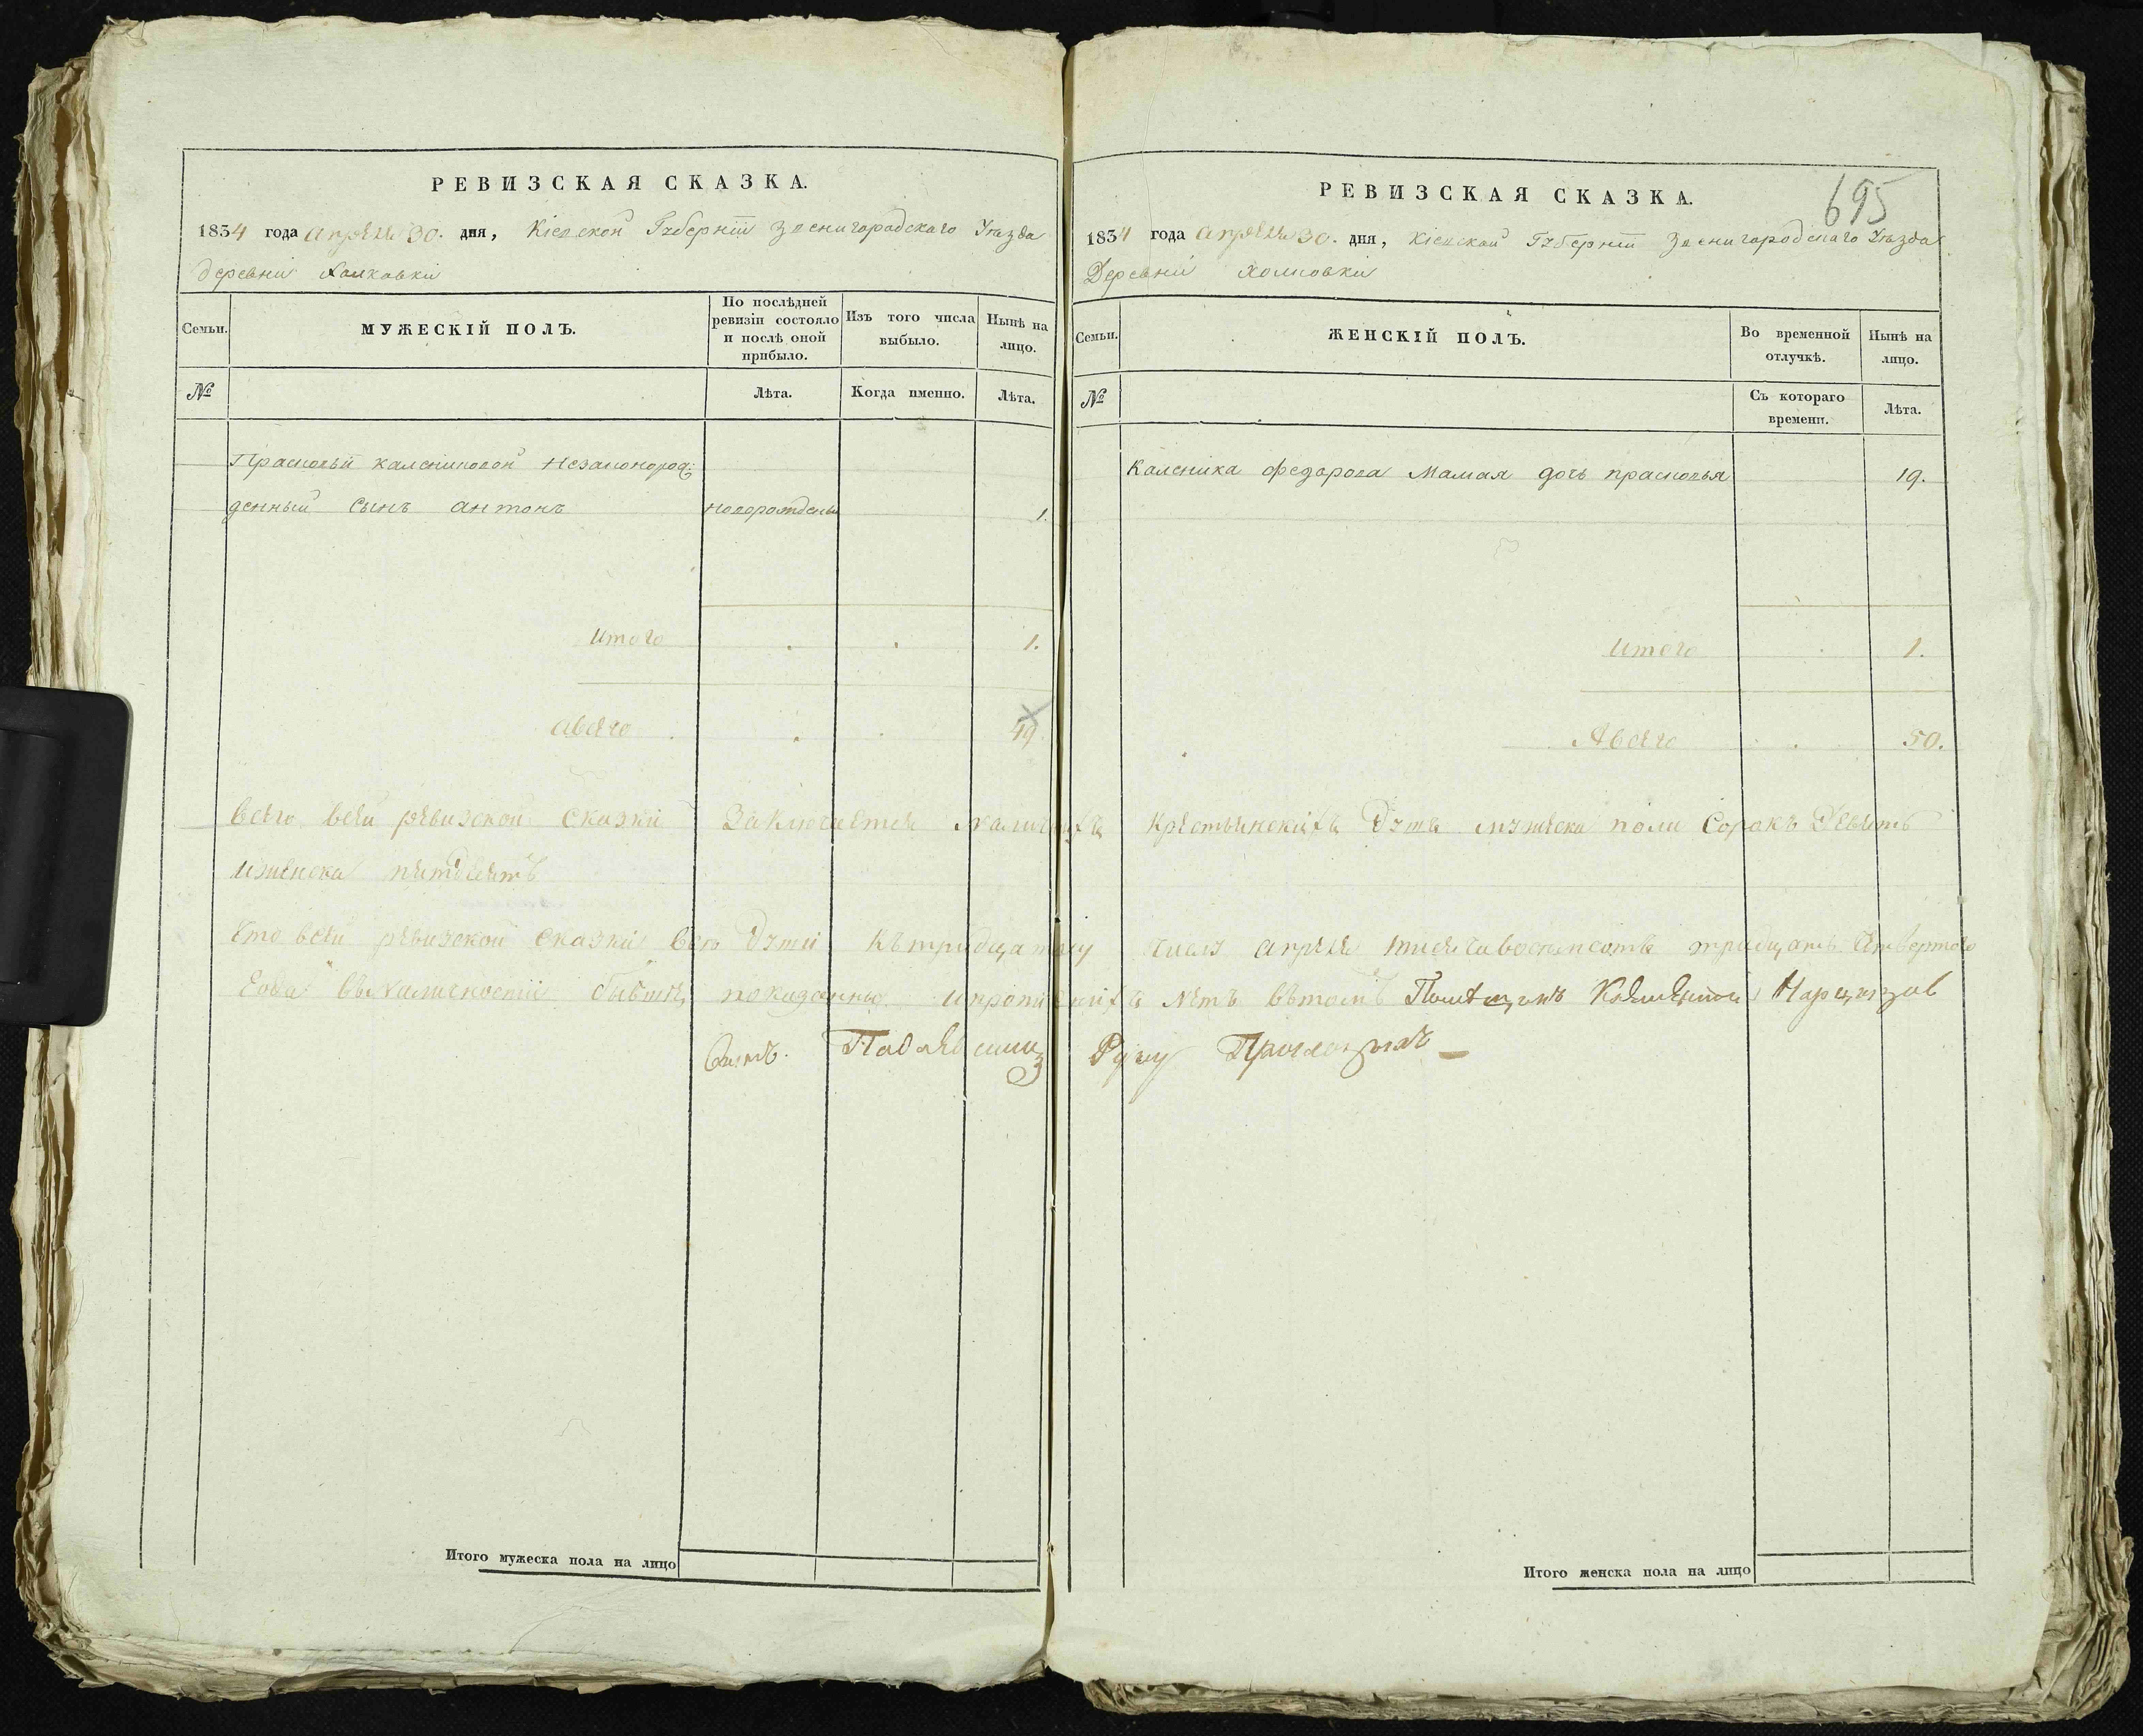 РЕВИЗСКАЯ СКАЗКА.
1834 года апреля 30. дня, Кіевской Губерніи Звенигородскаго Уѣзда
деревни Холковки
Семьи.
МУЖЕСКІЙ ПОЛЪ.
По послѣдней ревизіи состояло и послѣ оной прибыло.
Изъ того числа выбыло.
Нынѣ на лицо.
№
Лѣта.
Когда именно.
Лѣта.
Прасковьи калениковой незаконорож
денный сынъ антонъ новорожденъ 1.
итого 1.
авсего 49
РЕВИЗСКАЯ СКАЗКА.
695
1834 года апреля 30. дня, Кіевской Губерніи Звенигородскаго Уѣзда
Деревни Холковки
Семьи.
ЖЕНСКІЙ ПОЛЪ.
Во временной отлучкѣ.
Нынѣ на лицо.
№
Съ котораго времени.
Лѣта.
Каленика федорова Мамая дочь прасковья 19.
итого 1.
Авсего 50.
всего всей ревизской сказки Заключается Наличнихъ Крестьянскихъ Душъ мужеска пола Сорокъ Девять
иженска пятдесятъ
Ето всей ревизской сказки все Души Кътридцатому числу апреля тисячавосемсотъ тридцать Четвертого
года вналичности бывше показанны. ипрописнихъ Нетъ вътомъ
Руку Приложилъ
Итого мужеска пола на лицо
Итого женска пола на лицо